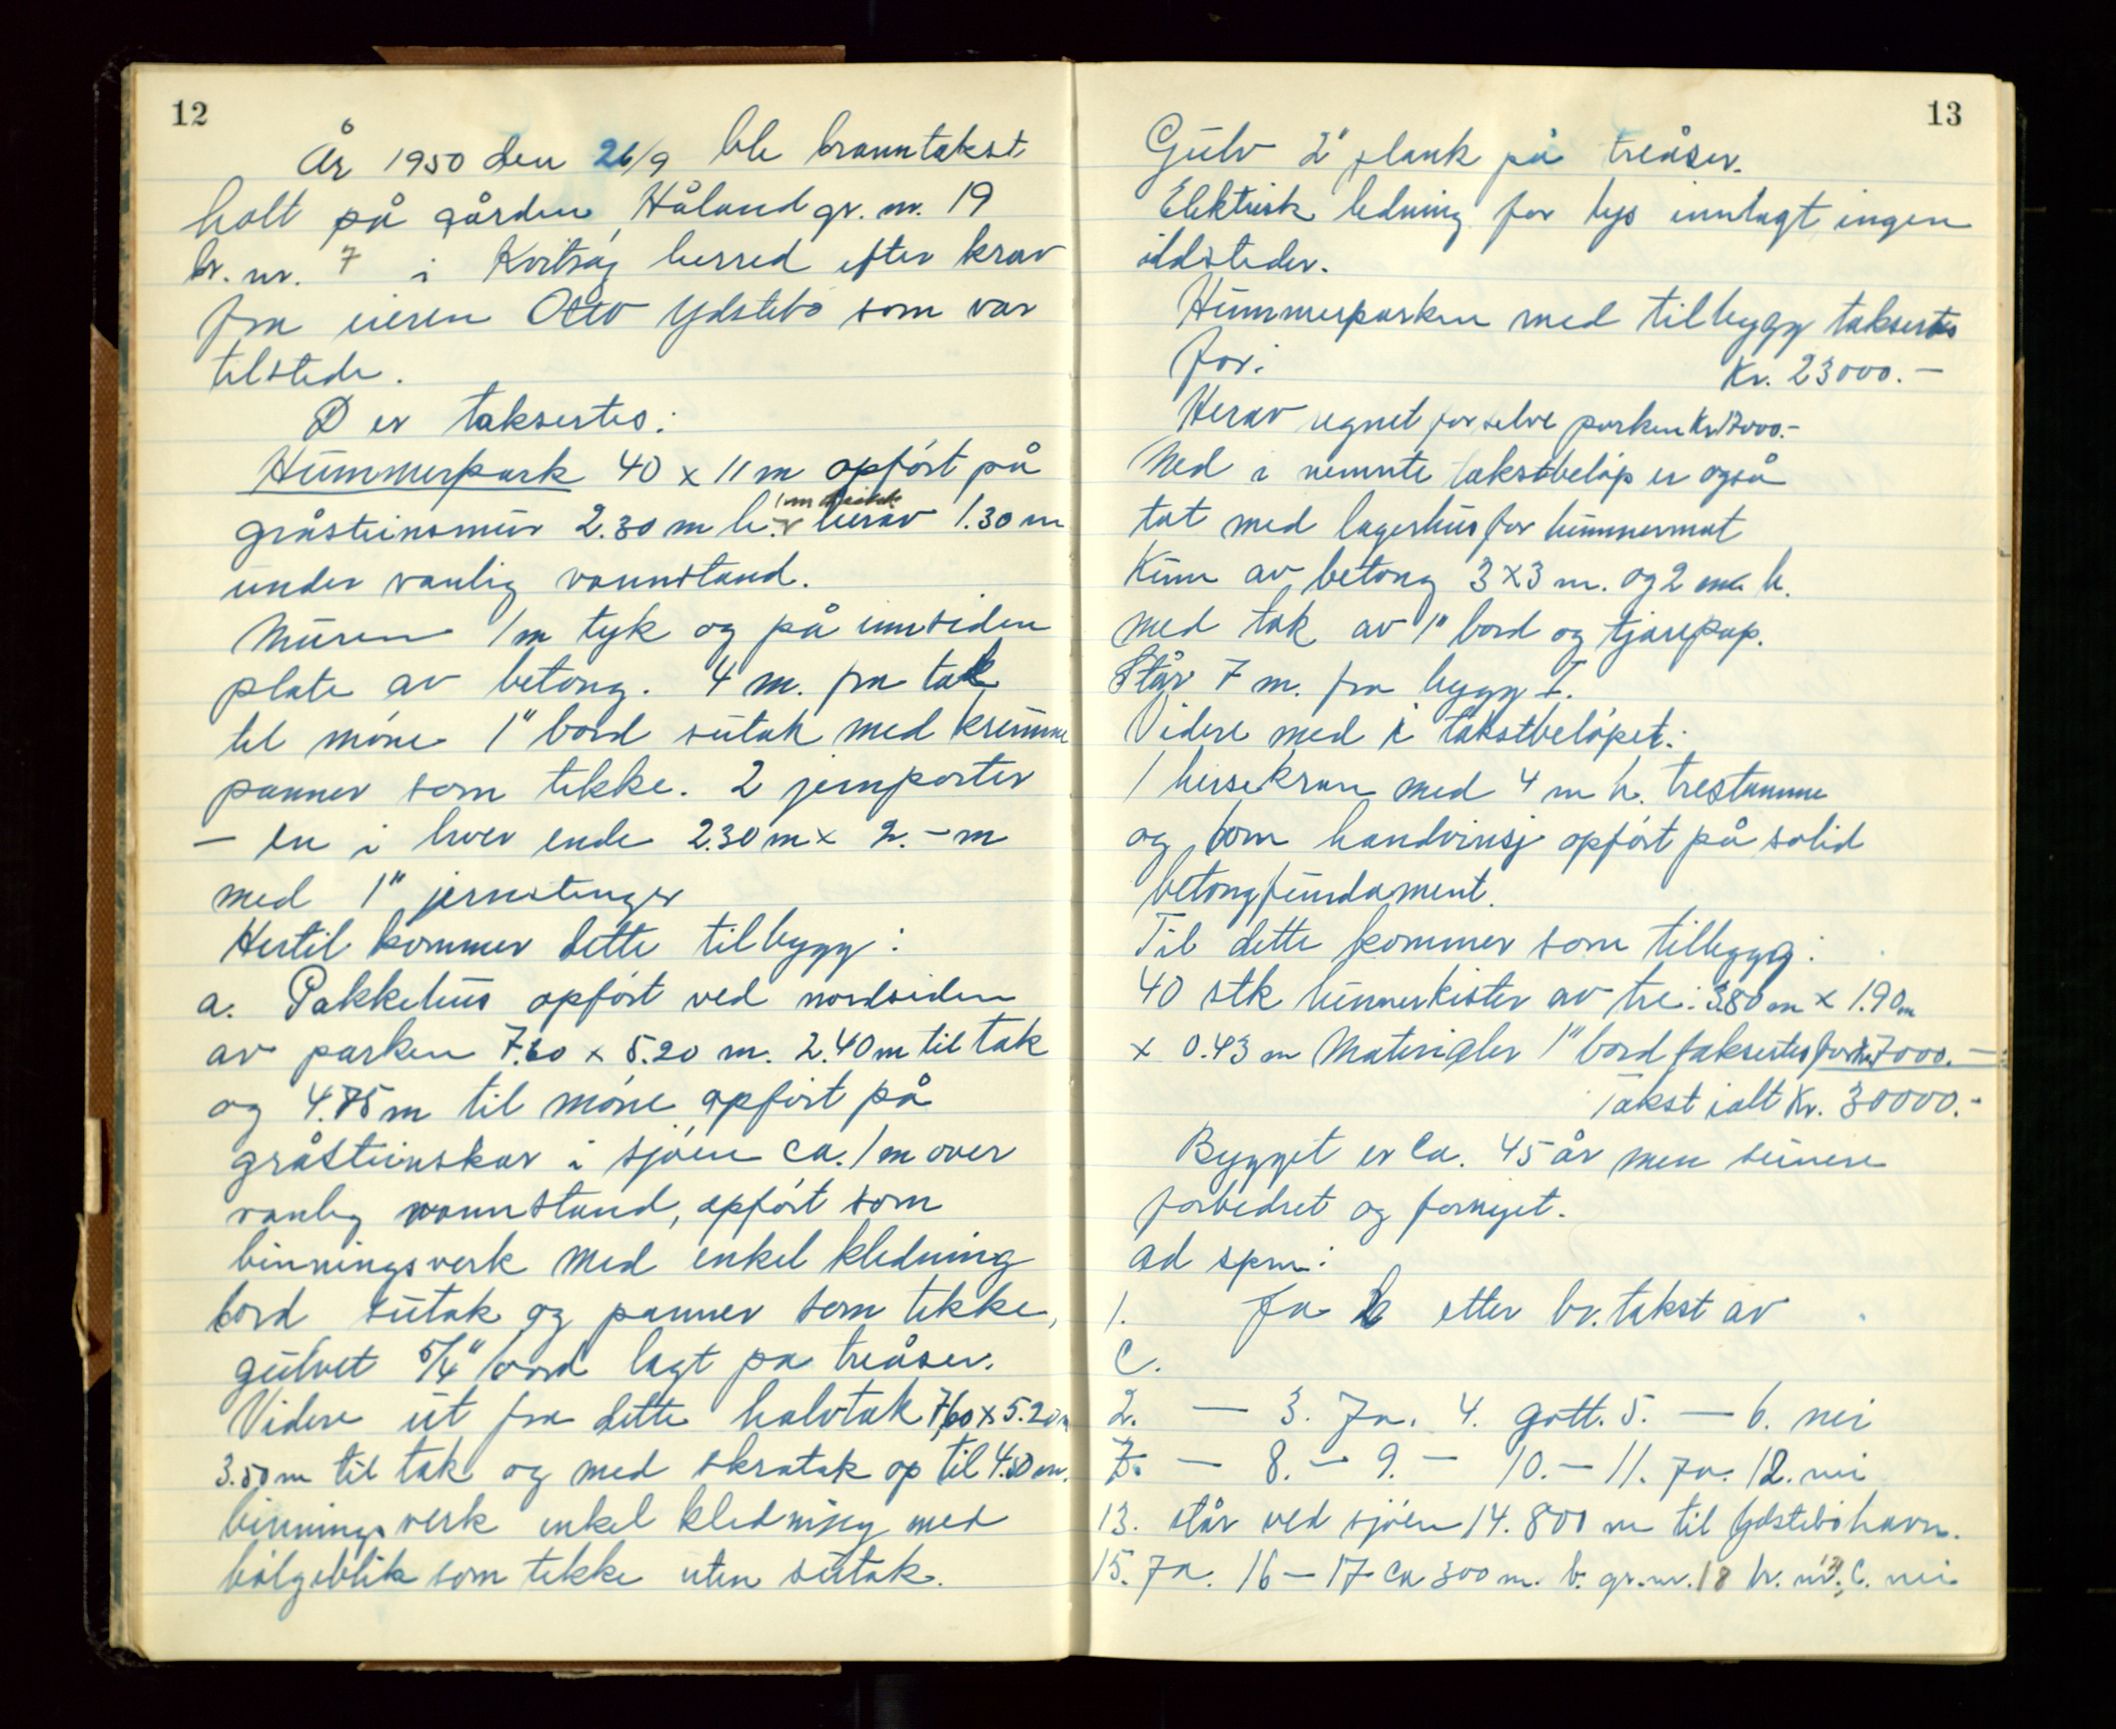 12
År 1950 den 26/9 ble branntakst
holt på gården Håland gr. nr. 19
br. nr. 7 i Kvitsøy herred efter krav
fra eieren Otto Ydstebø som var
tilstede.
D er taksertes:
Hummerpark 40 x 11 m opført på
gråsteinsmur 2.30 m h. herav 1.30 m
under vanlig vannstand.
Muren 1 m tyk og på innsiden
plate av betong. 4 m. fra tak
til møne 1" bord sutak med krumme
panner som tekke. 2 jernporter
– en i hver ende 2.30 m x 2.– m
med 1" jernstenger
Hertil kommer dette tilbygg:
a. Pakkehus opført ved nordsiden
av parken 7.60 x 5.20 m. 2.40 m til tak
og 4.75 m til møne, opført på
gråsteinskar i sjøen ca. 1 m over
vanlig vannstand, opført som
binningsverk med enkel kledning
bord sutak og panner som tekke,
gulvet 5/4" bord lagt pa treåser.
Videre ut fra dette halvtak 7.60 x 5.20 m
3.50 m til tak og med skratak op til 4.50 m.
binningsverk enkel kledning med
bølgeblik som tekke uten sutak.
13
Gulv 2" plank på treåser.
Elektrisk ledning for lys innlagt, ingen
ildsteder.
Hummerparken med tilbygg taksertes
for: Kr. 23000.–
Herav regnet for selve parken Kr. 17000.–
Med i nemnte takstbeløp er også
tat med lagerhus for hummermat
Kum av betong 3 x 3 m. og 2 m h.
med tak av 1" bord og tjærepap.
Står 7 m. fra bygg I.
Videre med i takstbeløpet:
1 heisekran med 4 m h. trestamme
og bom handvinsj opført på solid
betongfundament.
Til dette kommer som tilbygg:
40 stk hummerkister av tre: 3.80 m x 1.90 m
x 0.43 m Materialer 1" bord taksertes for kr. 7000.–
Takst ialt Kr. 30000.–
Bygget er ca. 45 år men seinere
forbedret og fornyet.
ad spm:
1. Ja etter br. takst av
C.
2. – 3. Ja. 4. gott. 5. – 6. nei
7. – 8. – 9. – 10. – 11. Ja. 12. nei
13. står ved sjøen 14. 800 m til Ydstebøhavn.
15. Ja. 16 – 17 ca 300 m. b. gr. nr. 18 br. nr. C. nei